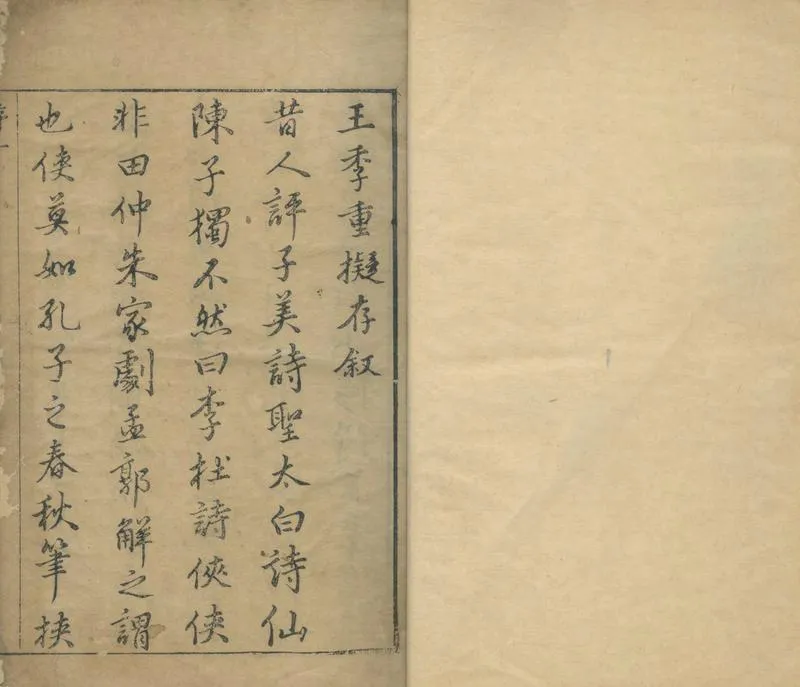 王季重擬存叙
昔人評子美詩聖太白詩仙
陳子獨不然曰李杜詩俠俠
非田仲朱家劇孟郭解之謂
也俠莫如孔子之春秋筆挾